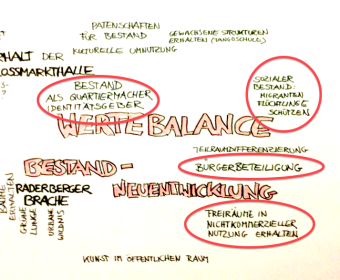 PATENSCHAFTEN
FÜR BESTAND
GEWACHSENE STRUKTUREN
ERHALTEN
KULTURELLE UMNUTZUNG
ERHALT DER
OSSMARKTHALLE
BESTAND
ALS QUARTIERMACHER
IDENTITÄTSGEBER
SOZIALER
BESTAND:
MIGRANTEN
FLÜCHTLINGE
SCHÜTZEN
WERTE BALANCE
TEILRAUMDIFFERENZIERUNG
BÜRGERBETEILIGUNG
BESTAND-
NEUENTWICKLUNG
RADERBERGER
BRACHE
BÄUME
ERHALTEN
GRÜNE
LUNGE
URBANE
WILDNIS
FREIRÄUME IN
NICHTKOMMERZIELLER
NUTZUNG ERHALTEN
KUNST IM ÖFFENTLICHEN RAUM